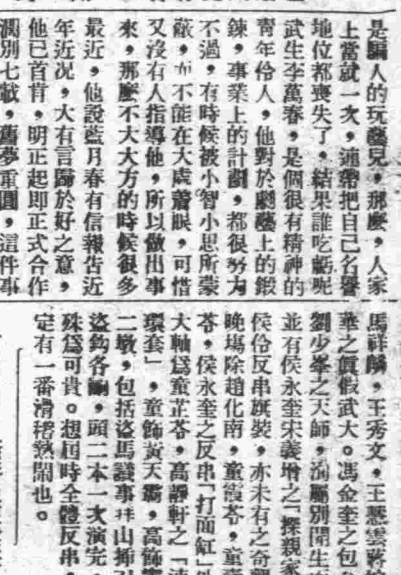 是騙人的玩藝兒，那麼，人家
上當就一次，連帶把自己名譽
地位都喪失了，結果誰吃虧呢
武生李萬春，是個很有精神的
青年伶人，他對於劇藝上的鍛
鍊，事業上的計劃，都很努力
不過，有時候被小智小思所蒙
蔽，而不能在大處着眼，可惜
又沒有人指導他，所以做出事
來，那麼不大大方的時候很多
最近，他說藍月春有信報告近
年近況，大有言歸於好之意，
他已首肯，明正起即正式合作
濶別七載，舊夢重圓，這件事
馬祥麟，王秀文，王慧雲蔣
華之真假武大。馮金奎之包
劉少峯之天師，別開生
並有侯永奎宋義增之「探親家
侯伶反串旗裝，亦未有之奇
晚塲除趙化南，童霞苓，童
苓，侯永奎之反串「打面缸」
大軸爲童芷苓，高靜軒之「連
環套」，童飾黃天霸，高飾竇
二墩，包括盜馬議事拜山插
盜鈎各齣，頭二本一次演完，
殊爲可貴。想屆時全體反串，
定有一番滑稽熱鬧也。